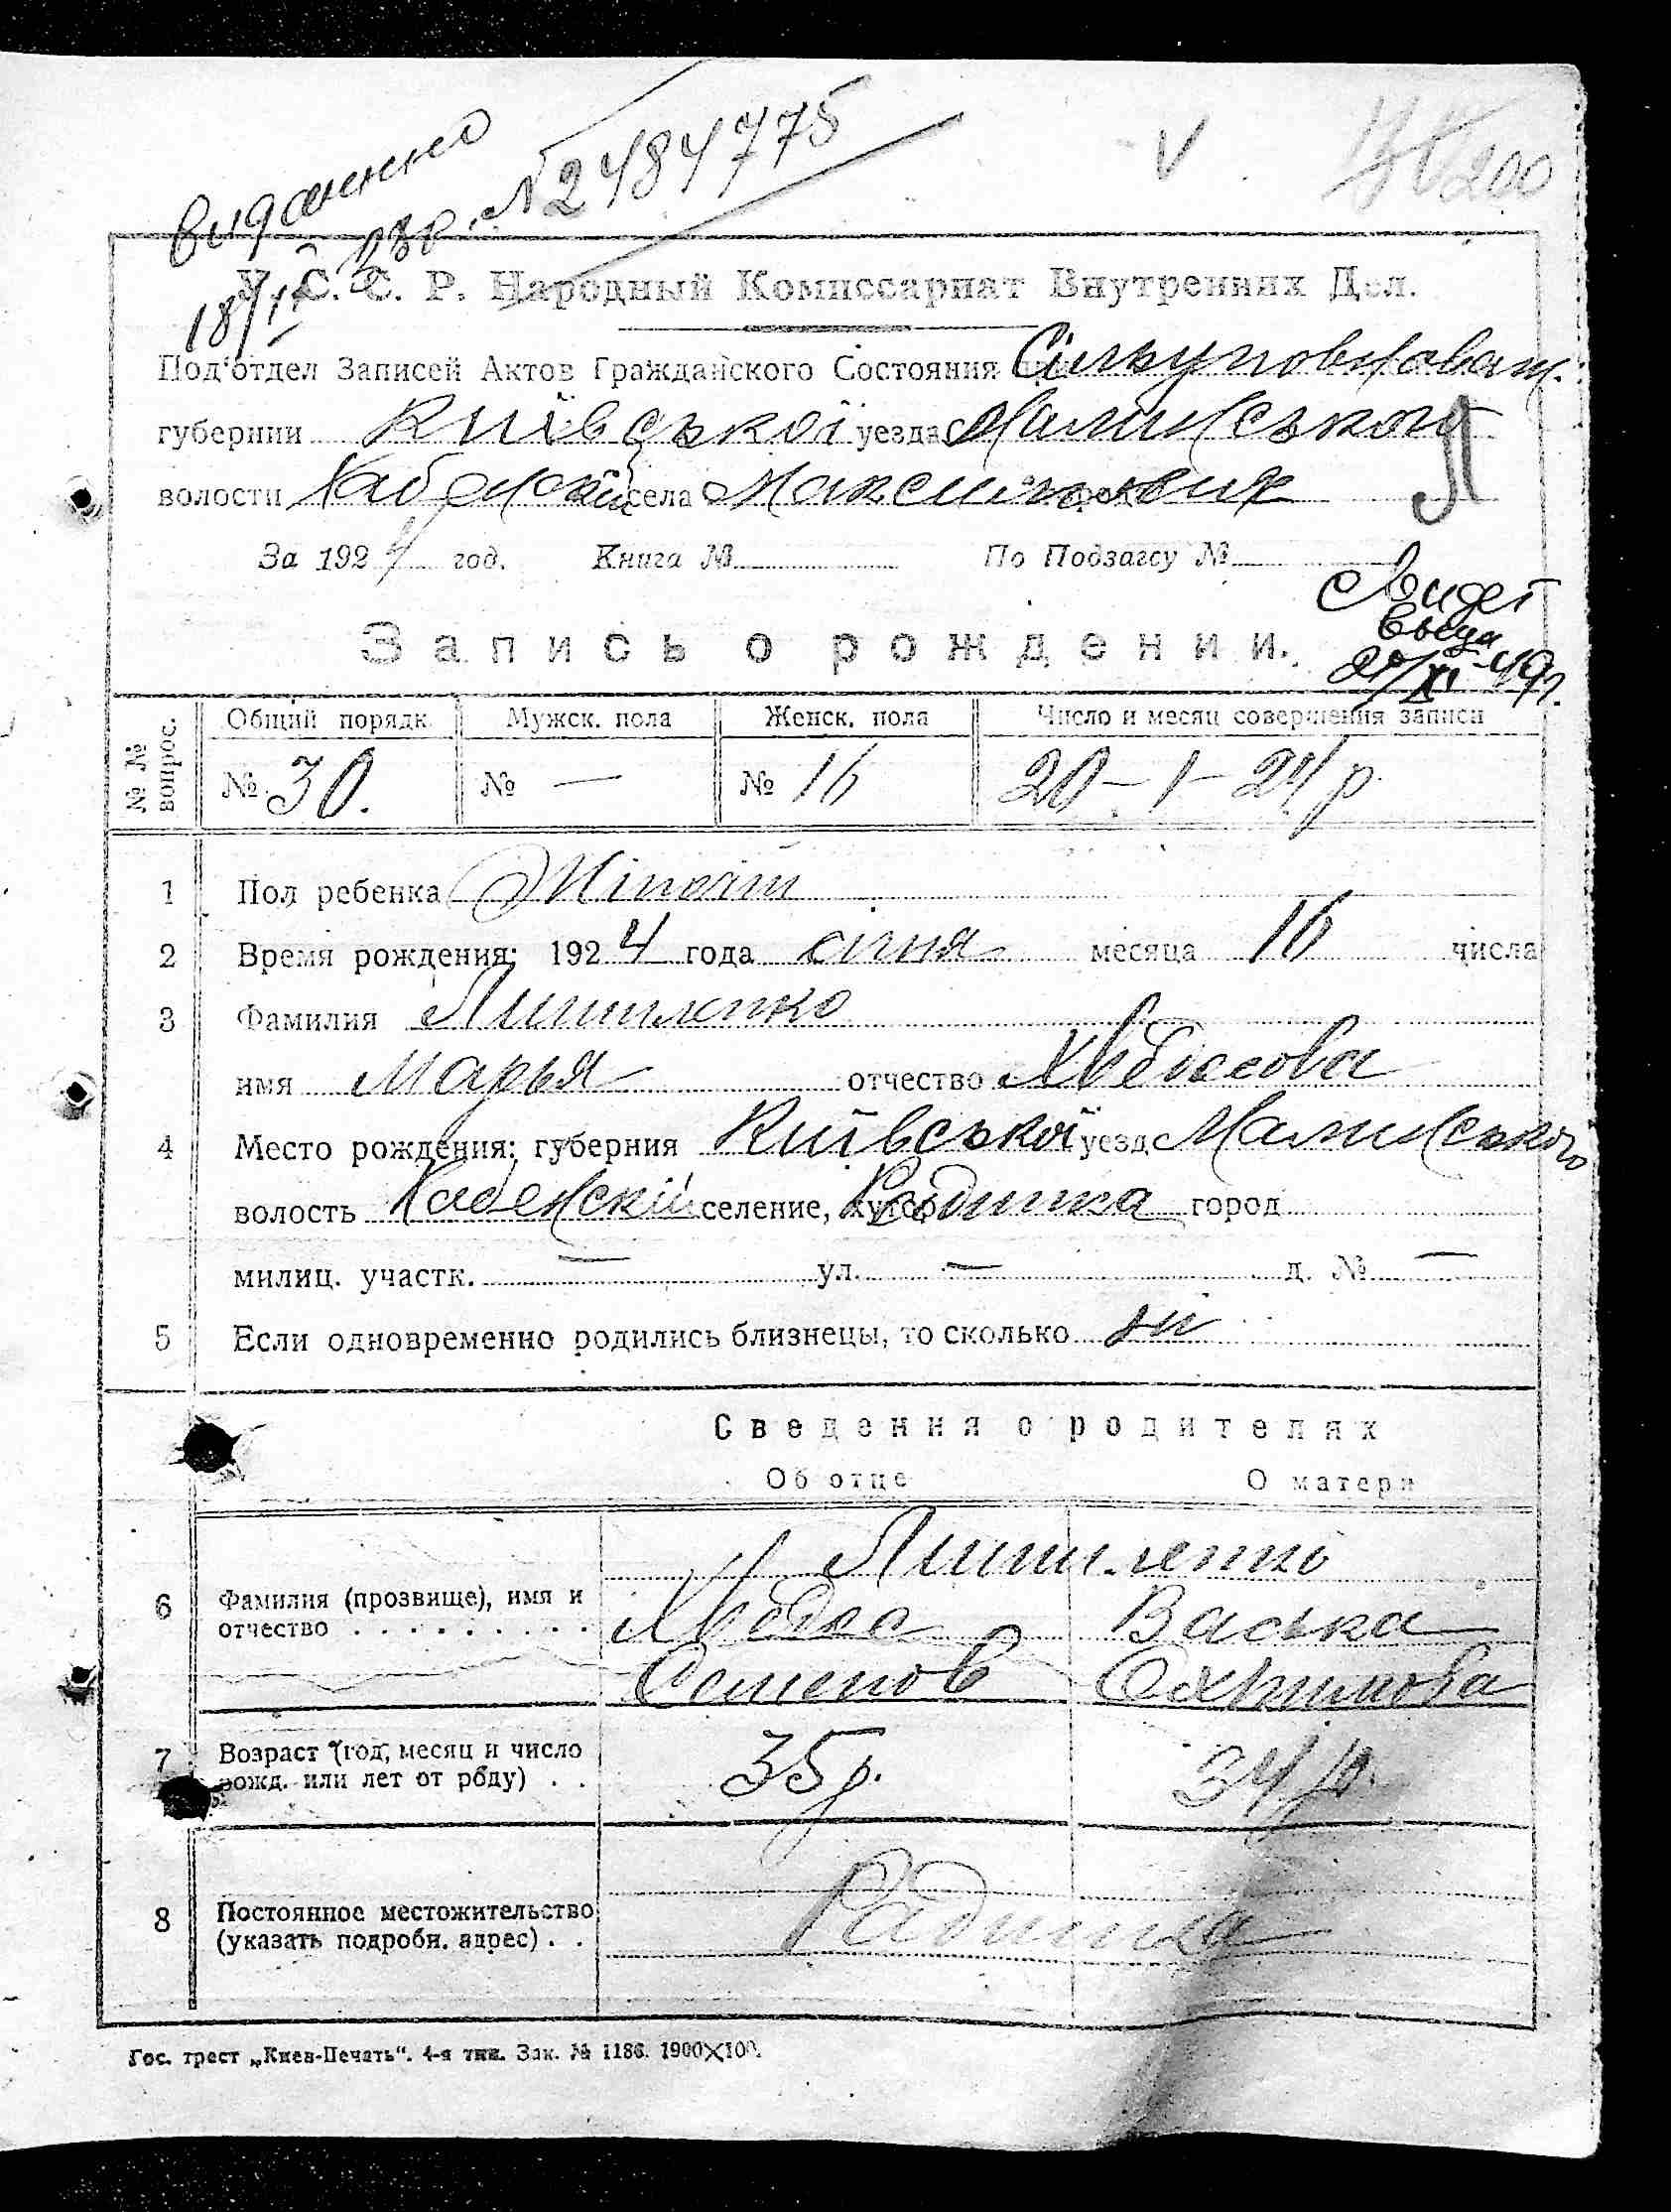 виданно
№ 2484775
200
18/II
У. С. С. Р. Народный Комиссариат Внутренних Дел.
Под'отдел Записей Актов Гражданского Состояния при
губернии Київської уезда Малинського
волости села Максимович
За 1924 год. Книга № По Подзагсу №
Л
Свидет
выда
49г.
Запись о рождении.
№№ вопрос. Общий порядк. Мужск. пола Женск. пола Число и месяц совершения записи
№ 30. № — № 16 20 – 1 – 24 р
1 Пол ребенка Жіночий
2 Время рождения: 1924 года січня месяца 16 числа
3 Фамилия
имя Марья отчество Хведосова
4 Место рождения: губерния Київської уезд Малинського
волость селение, хутор Радинка город
милиц. участк. — ул. — д. № —
5 Если одновременно родились близнецы, то сколько ні
Сведения о родителях
Об отце О матери
6 Фамилия (прозвище), имя и
отчество . . . . . . . . .
Хведос Васька
Семенов Охримова
7 Возраст (год, месяц и число
рожд. или лет от роду) . . 35 р. 34 р.
8 Постоянное местожительство
(указать подробн. адрес) . . Радинка
Гос. трест „Киев-Печать“. 4-я тип. Зак. № 1186. 1900×100.